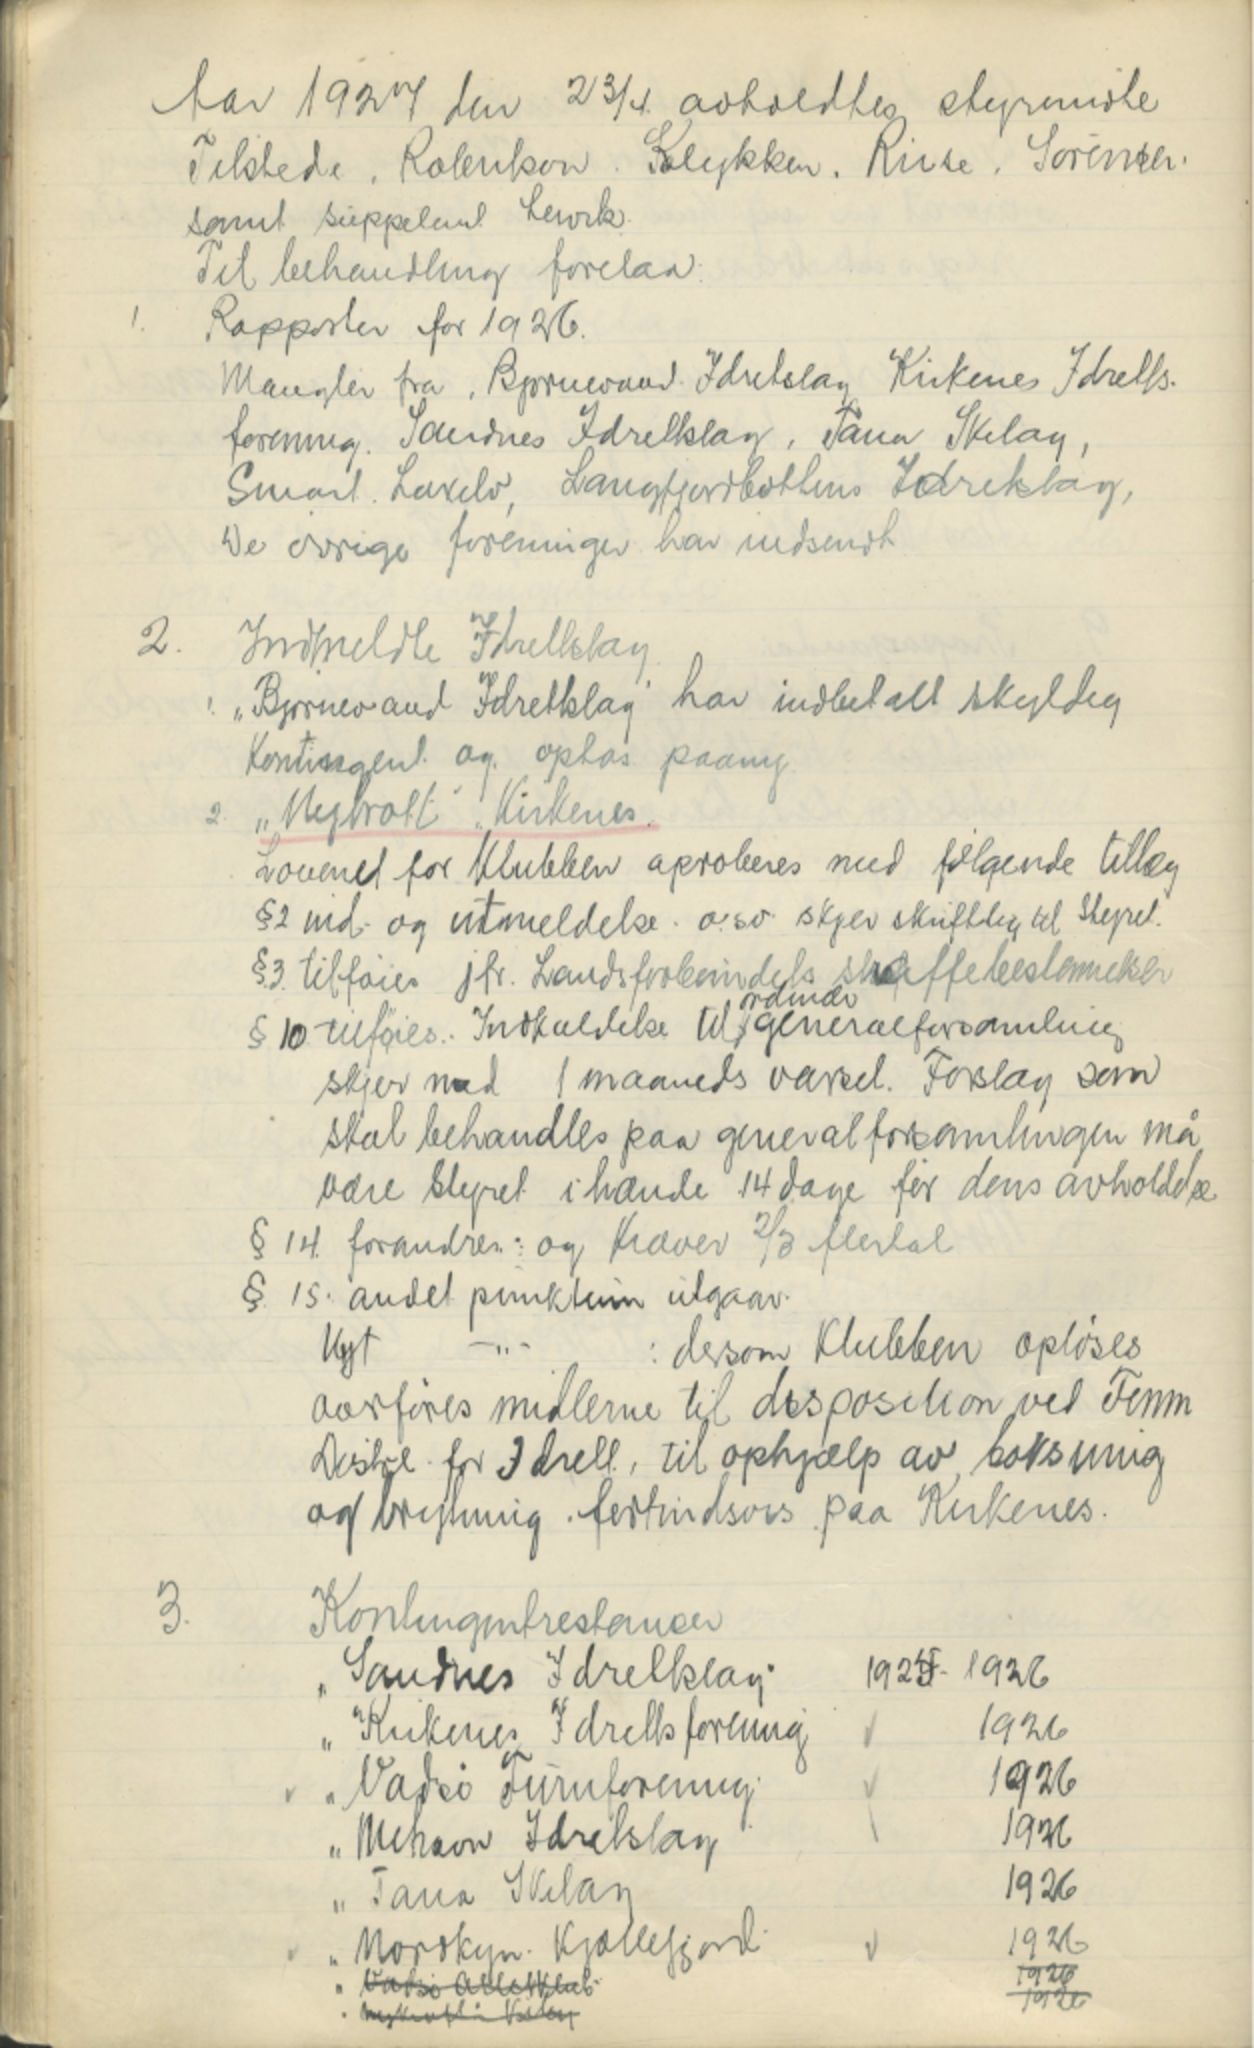 Aar 1927 den 23/4 avholdtes styremøte
Tilstede, Robertson. Klykken. Riise. Sørensen.
samt suppleant Lervik.
Til behandling forelaa:
1. Rapporter for 1926.
Mangler fra, Bjørnevand Idretslag Kirkenes Idretts-
forening. Sandnes Idrettslag, Tana Skilag,
Smart. Laxelv, Langfjordbottens Idrætslag,
De øvrige foreninger har indsendt
2. Indmeldte Idrettslag
1. "Bjørnevand Idrettslag" har indbetalt skyldig
kontingent og optas paany
2. "Nybrott" Kirkenes.
Lovene for Klubben aproberes med følgende tillæg
§2 ind- og utmeldelse o.s.v. skjer skriftlig til Styret.
§3. tilføies jfr. Landsforbundets straffebestemmelser
§ 10 tilføies. Indkaldelse til ordinær generalforsamling
skjer med 1 maaneds varsel. Forslag som
skal behandles paa generalforsamlingen må
være Styret ihænde 14 dage før dens avholdelse
§ 14. forandres: og kræver 2/3 flertal
§ 15. andet punktum utgaar.
Nyt -"- : dersom Klubben opløses
overføres midlerne til disposition ved Finm
Distr. for Idrett, til ophjælp av boksning
og brytning fortrindsvis paa Kirkenes.
3. Kontingentrestanser
" Sandnes Idrettslag 1925- 1926
" Kirkenes Idrettsforening ✓ 1926
✓ " Vadsø Turnforening ✓ 1926
" Mehavn Idretslag 1926
" Tana Skilag 1926
✓ " Nordkyn. Kjøllefjord ✓ 1926
" Vadsø Atletklub 1926
" 1926